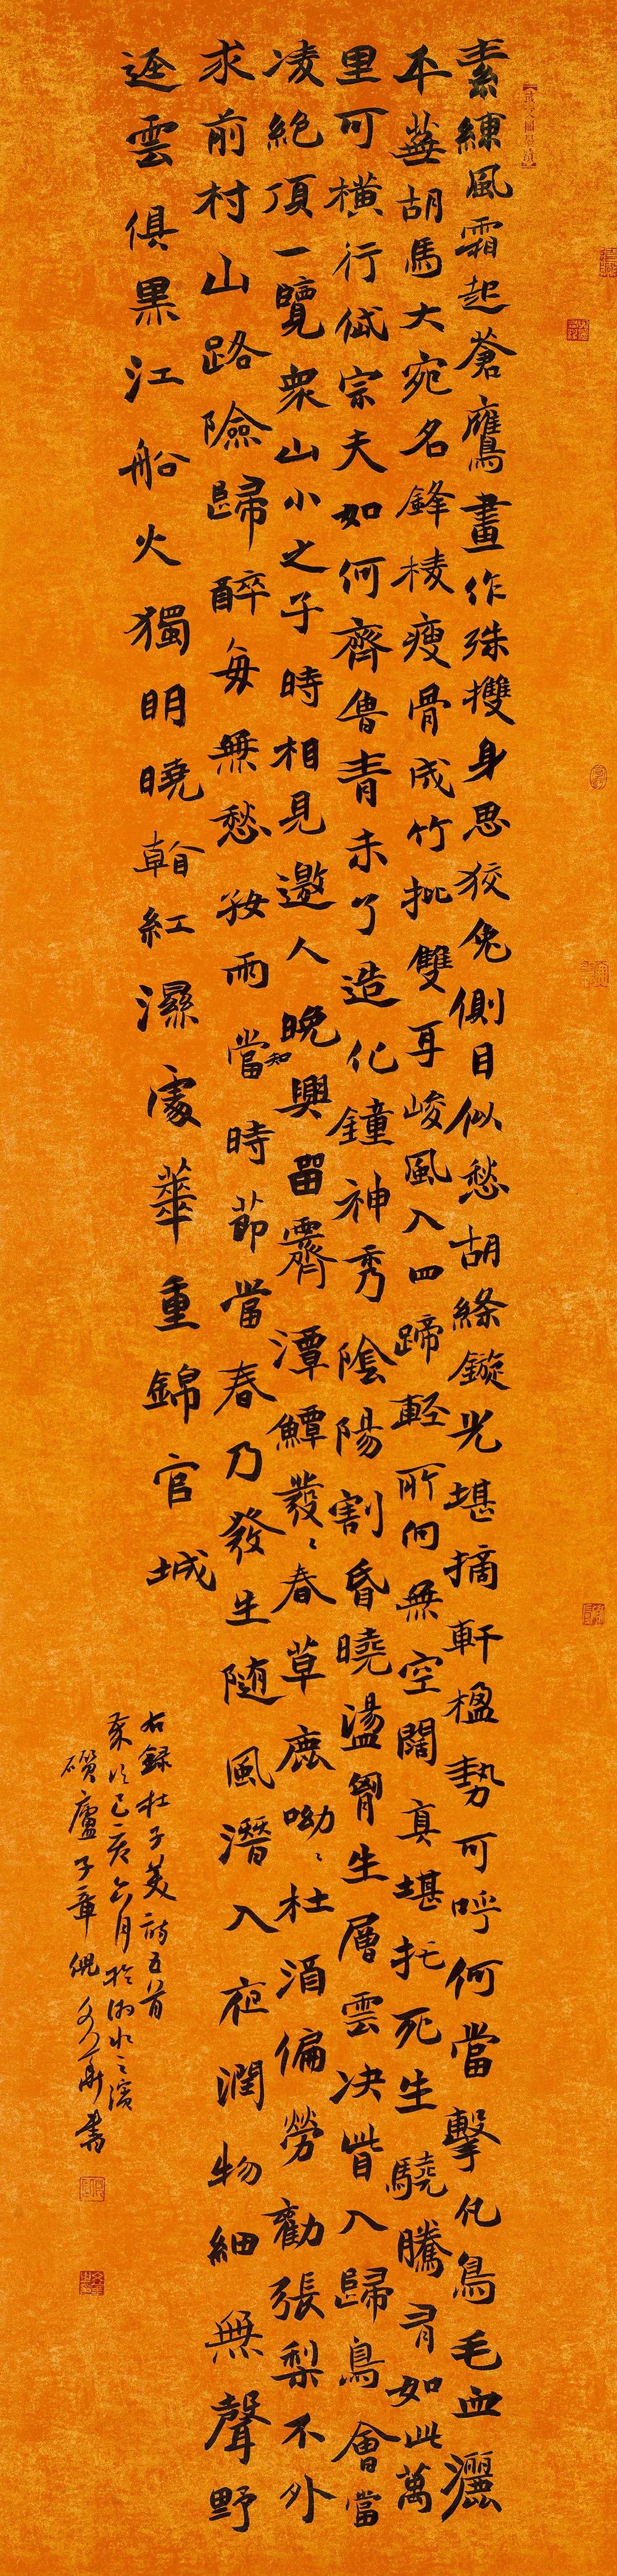 素練風霜起蒼鷹畫作殊㩳身思狡兔側目似愁胡絛鏇光堪摘軒楹勢可呼何當擊凡鳥毛血灑
平蕪胡馬大宛名鋒棱瘦骨成竹批雙耳峻風入四蹄輕所向無空闊真堪托死生驍騰有如此萬
里可橫行岱宗夫如何齊魯青未了造化鐘神秀陰陽割昏曉盪胷生層雲決眥入歸鳥會當
凌絕頂一覽衆山小之子時相見邀人晚興留霽潭鱣發〻春草鹿呦〻杜酒偏勞勸張梨不外
求前村山路險歸醉每無愁好雨當知時節當春乃發生隨風潛入夜潤物細無聲野
逕雲俱黑江船火獨明曉看紅濕處華重錦官城
右錄杜子美詩五首
歲次己亥六月於湘水之濱
廬子章倪書